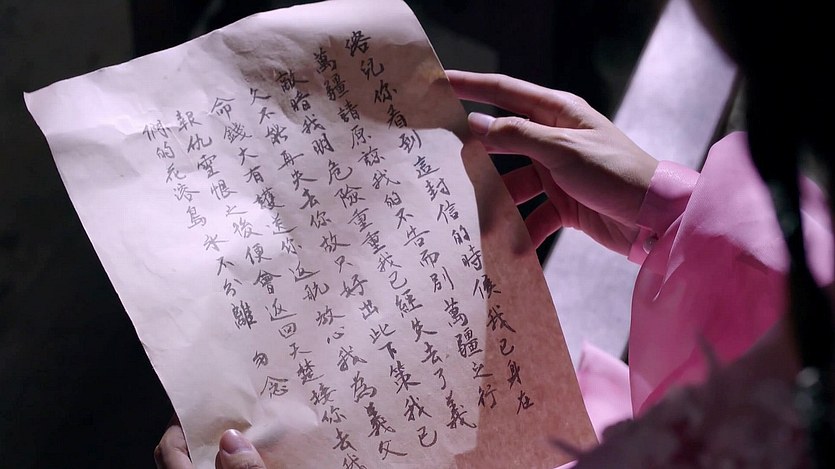 溶兒你看到這封信的時候我已身在
萬疆請原諒我的不告而別萬疆之行
敵暗我明危險重重我已經失去了義
父不能再失去你故只好出此下策我已
命錢大有護送你返航放心我為義父
報仇雪恨之後便會返回天楚接你去我
們的花溶島永不分離 勿念